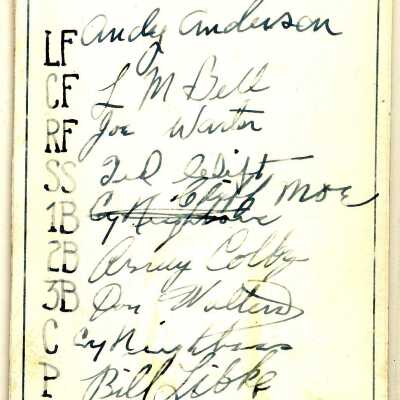 LF Andy Anderson
CF L M Bell
RF Joe Warter
SS Ted Clift
1B Cy Neighbors Moe
2B Army Colby
3B Don Walters
C Cy Neighbors
P Bill Libke